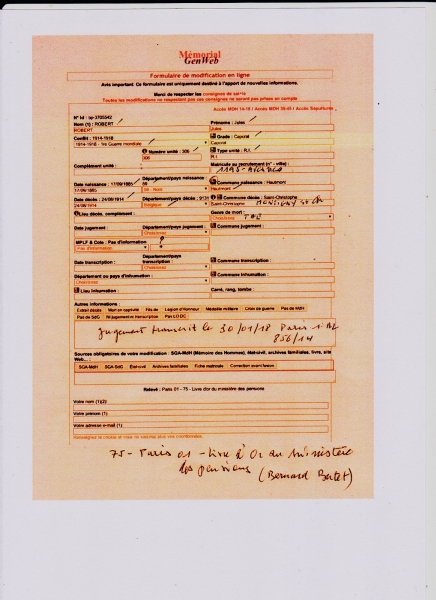 Mémorial
GenWeb
Formulaire de modification en ligne
Avis important: Ce formulaire est uniquement destiné à l'apport de nouvelles informations.
Merci de respecter les consignes de saisie
Toutes les modifications ne respectant pas ces consignes ne seront pas prises en compte
Accès MDH 14-18 / Accès MDH 39-45 / Accès Sépultures
N° Id : bp-3705542
Nom (1) : ROBERT
Prénom : Jules
ROBERT
Jules
Conflit : 1914-1918
Grade : Caporal
1914-1918 - 1re Guerre mondiale
Caporal
Numéro unité : 306
Type unité : R.I.
306
R.I.
Complément unité :
Matricule au recrutement (n° - ville) :
Date naissance : 17/09/1885
Département/pays naissance : 59
Commune naissance : Hautmont
17/09/1885
59 - Nord
Hautmont
Date décès : 24/08/1914
Département/pays décès : 9131
Commune décès : Saint-Christophe
24/08/1914
Belgique
Saint-Christophe
Lieu décès, complément :
Genre de mort :
Choisissez
Date jugement :
Département/pays jugement :
Commune jugement :
Choisissez
MPLF & Cote : Pas d'information
Pas d'information
Date transcription :
Département/pays transcription :
Commune transcription :
Choisissez
Département ou pays d'inhumation :
Commune inhumation :
Choisissez
Lieu inhumation :
Carré, rang, tombe :
Autres informations :
Extrait décès Mort en captivité Fils de Légion d'Honneur Médaille militaire Croix de guerre Pas de MdH
Pas de SdG Ni jugement ni transcription Pas LO DC
Jugement transcrit le 30/01/18 Paris
856/14
Sources obligatoires de votre modification : SGA-MdH (Mémoire des Hommes), état-civil, archives familiales, livre, site Web... :
SGA-MdH SGA-SdG Etat-civil Archives familiales Fiche matricule Correction avant fusion
Relevé : Paris 01 - 75 - Livre d'or du ministère des pensions
Votre nom (1)(2) :
Votre prénom (1) :
Votre adresse e-mail (1) :
75 - Paris 01 - Livre d'Or du Ministère
des pensions
(Bernard Bertet)